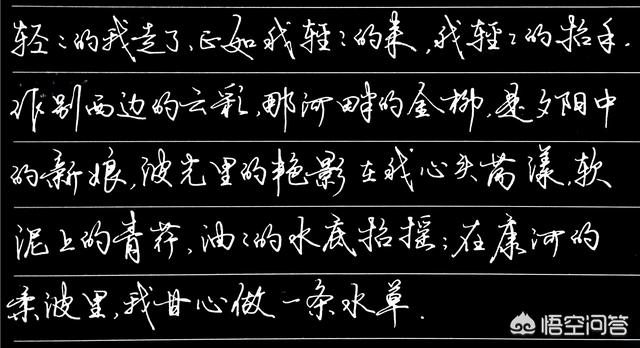 轻〻的我走了,正如我輕〻的来,我輕〻的招手.
作别西边的云彩,那河畔的金柳,是夕阳中
的新娘,波光里的艳影在我心头荡漾,软
泥上的青荇,油〻的水底招摇;在康河的
柔波里,我甘心做一条水草.
悟空问答